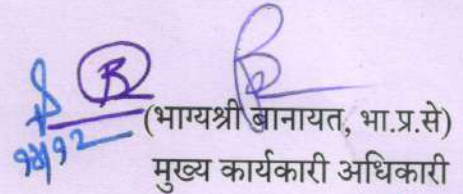 (भाग्यश्री बानायत, भा.प्र.से)
मुख्य कार्यकारी अधिकारी